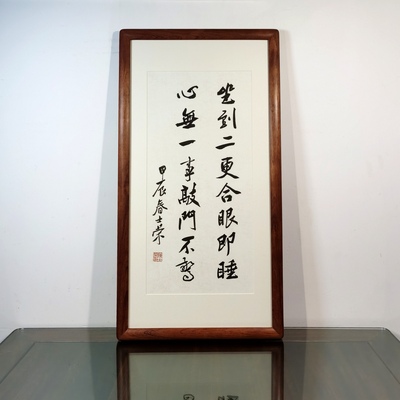 坐到二更合眼即睡
心無一事敲門不驚
甲辰春士榮